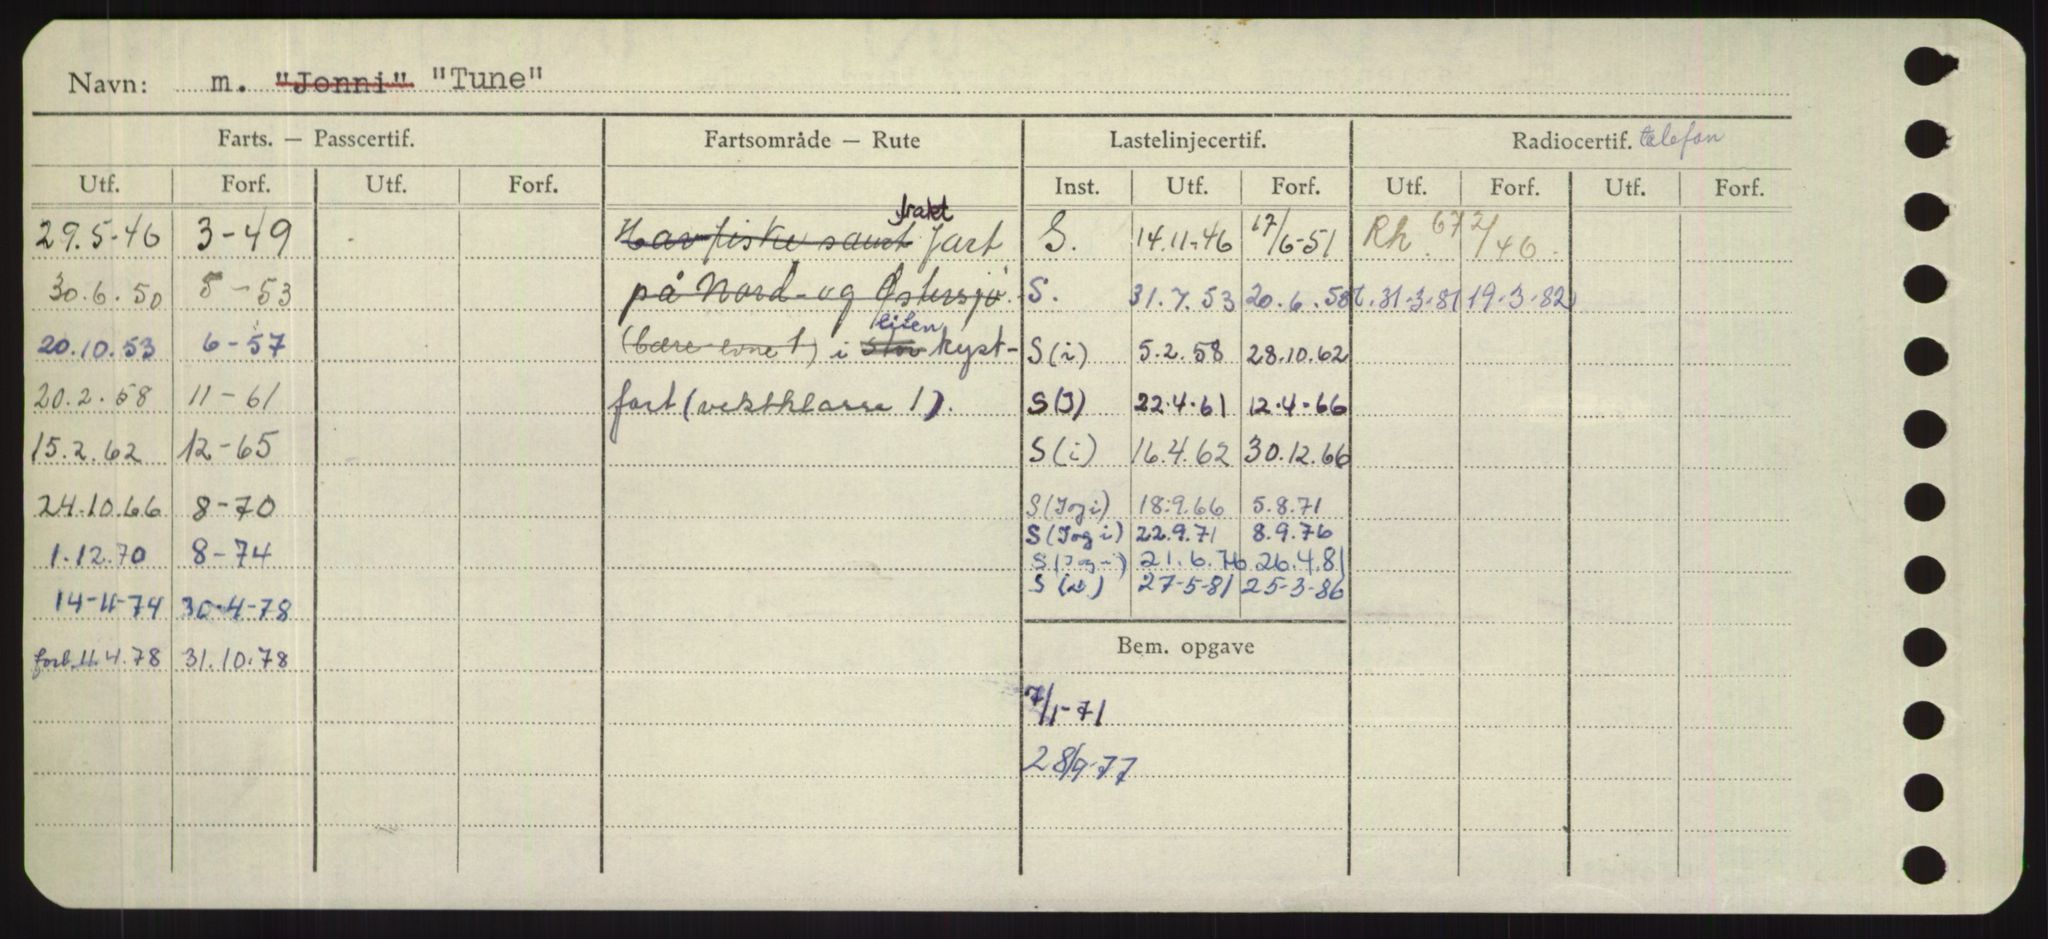 Navn: m. "Jonni" "Tune"
Farts. — Passcertif. Fartsområde — Rute Lastelinjecertif. Radiocertif. telefon
Utf. Forf. Utf. Forf. Inst. Utf. Forf. Utf. Forf. Utf. Forf.
frakt
29.5-46 3-49 Havfiske samt fart S. 14.11-46 17/6-51 Rh. 67 2/46.
30.6.50 5-53 på Nord- og Østersjø. S. 31.7.53 20.6.58 t.31-3-81 19-3-82
liten
20.10.53 6-57 (bære evne 1) i stor kyst- S(i) 5.2.58 28.10.62
20.2.58 11-61 fart (vektklasse 1). S(J) 22.4.61 12.4.66
15.2.62 12-65 S(i) 16.4.62 30.12.66
24.10.66 8-70 S(J og i) 18.9.66 5.8.71
S(J og i) 22.9.71 8.9.76
1.12.70 8-74 S(J og i) 21.6.76 26.4.81
14-11-74 30-4-78 S 27-5-81 25-3-86
forl. 11.4.78 31.10.78 Bem. opgave
7/1-71
28/9-77